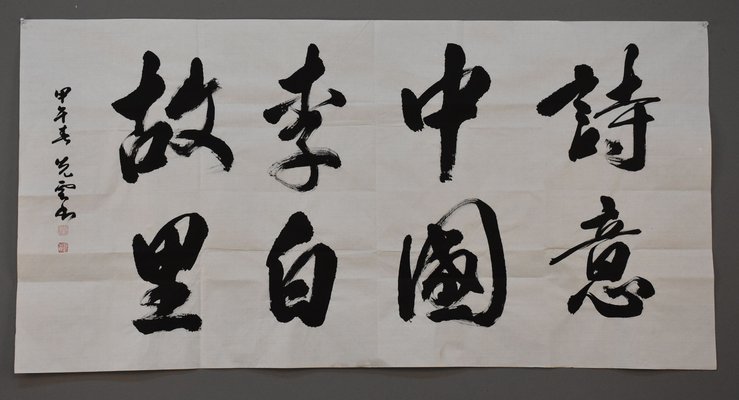 詩意
中國
李白
故里
甲午春 光雲書